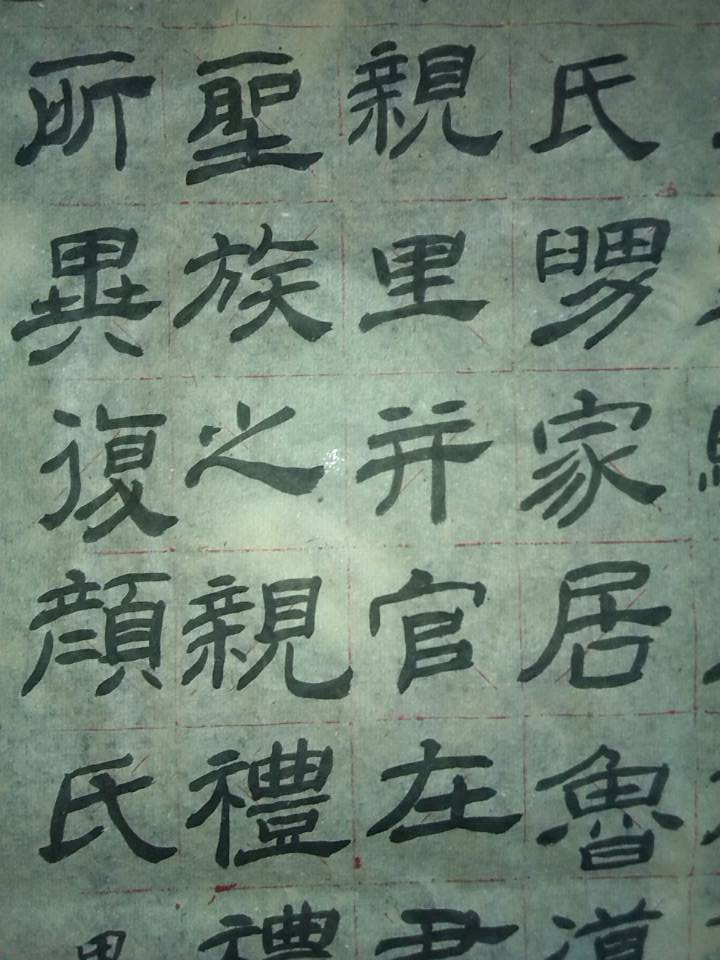 氏舅家居魯
親里并官在
聖族之親禮禮
所異復顏氏